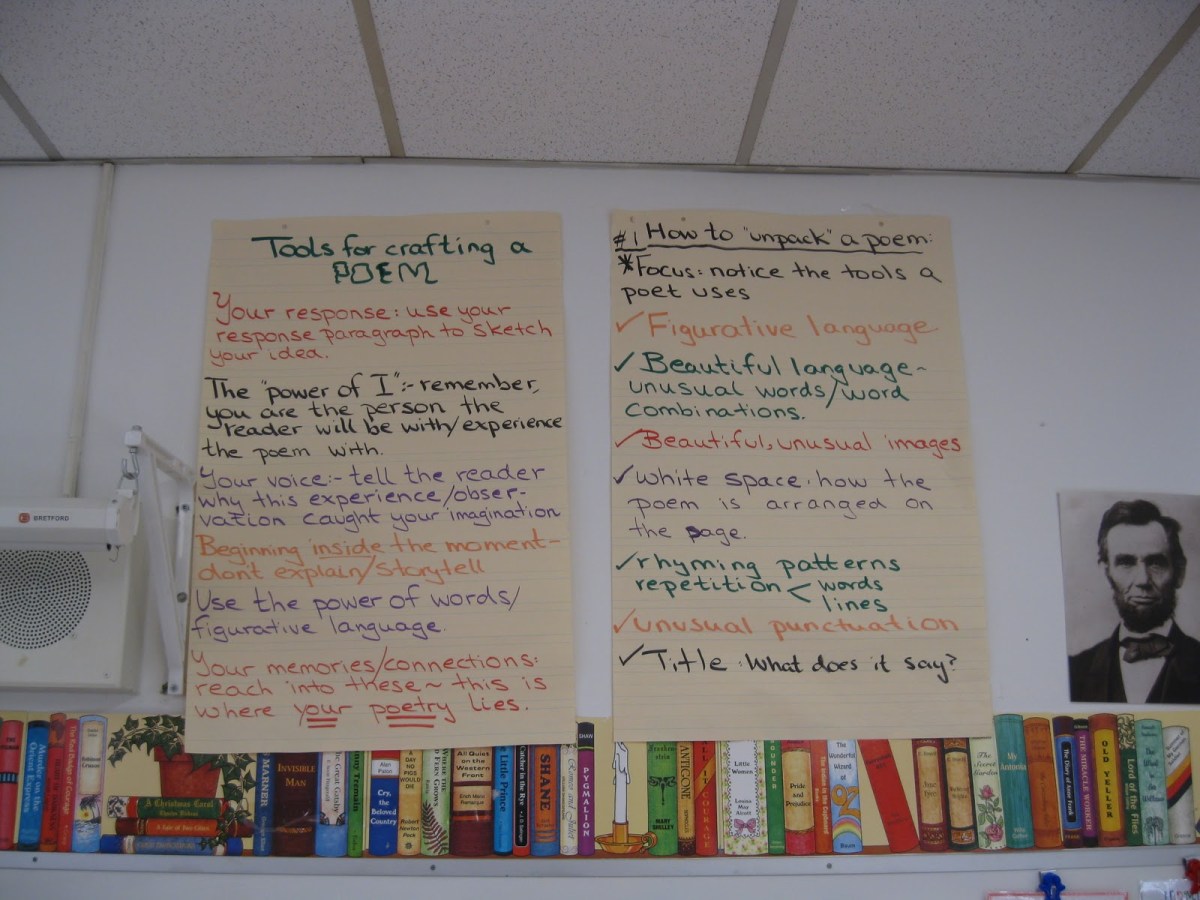 Tools for crafting a
POEM
Your response: use your
response paragraph to sketch
your idea.
The "power of I":- remember,
you are the person the
reader will be with/experience
the poem with.
Your voice:- tell the reader
why this experience/obser-
vation caught your imagination
Beginning inside the moment-
don't explain/storytell
Use the power of words/
figurative language.
Your memories/connections:
reach into these ~ this is
where your poetry lies.
#1 How to "unpack" a poem:
*Focus: notice the tools a
poet uses
✓Figurative language
✓Beautiful language-
unusual words/word
combinations.
✓Beautiful, unusual images
✓White space: how the
poem is arranged on
the page.
✓rhyming patterns
repetition < words
lines
✓unusual punctuation
✓Title: What does it say?
BRETFORD
Murder on the
Orient Express
The Red Badge of Courage
A Christmas Carol
A Tale of Two Cities
MARNER
INVISIBLE
MAN
The Great Gatsby
Alan Paton
Cry, the
Beloved
Country
A DAY
NO PIGS
WOULD
DIE
Robert
Newton
Peck
WHERE THE
RED FERN GROWS
All Quiet
on the
Western
Front
Little Prince
Catcher in the Rye
SHANE
Romeo and Juliet
SHAW
PYGMALION
MARY
SHELLEY
ANTIGONE
Little
Women
Louisa May
Alcott
Pride
and
Prejudice
The
Wonderful
Wizard
of
OZ
Baum
The
Secret
Garden
My
Antonia
The Diary of Anne Frank
THE MIRACLE WORKER
OLD YELLER
Lord of the Flies